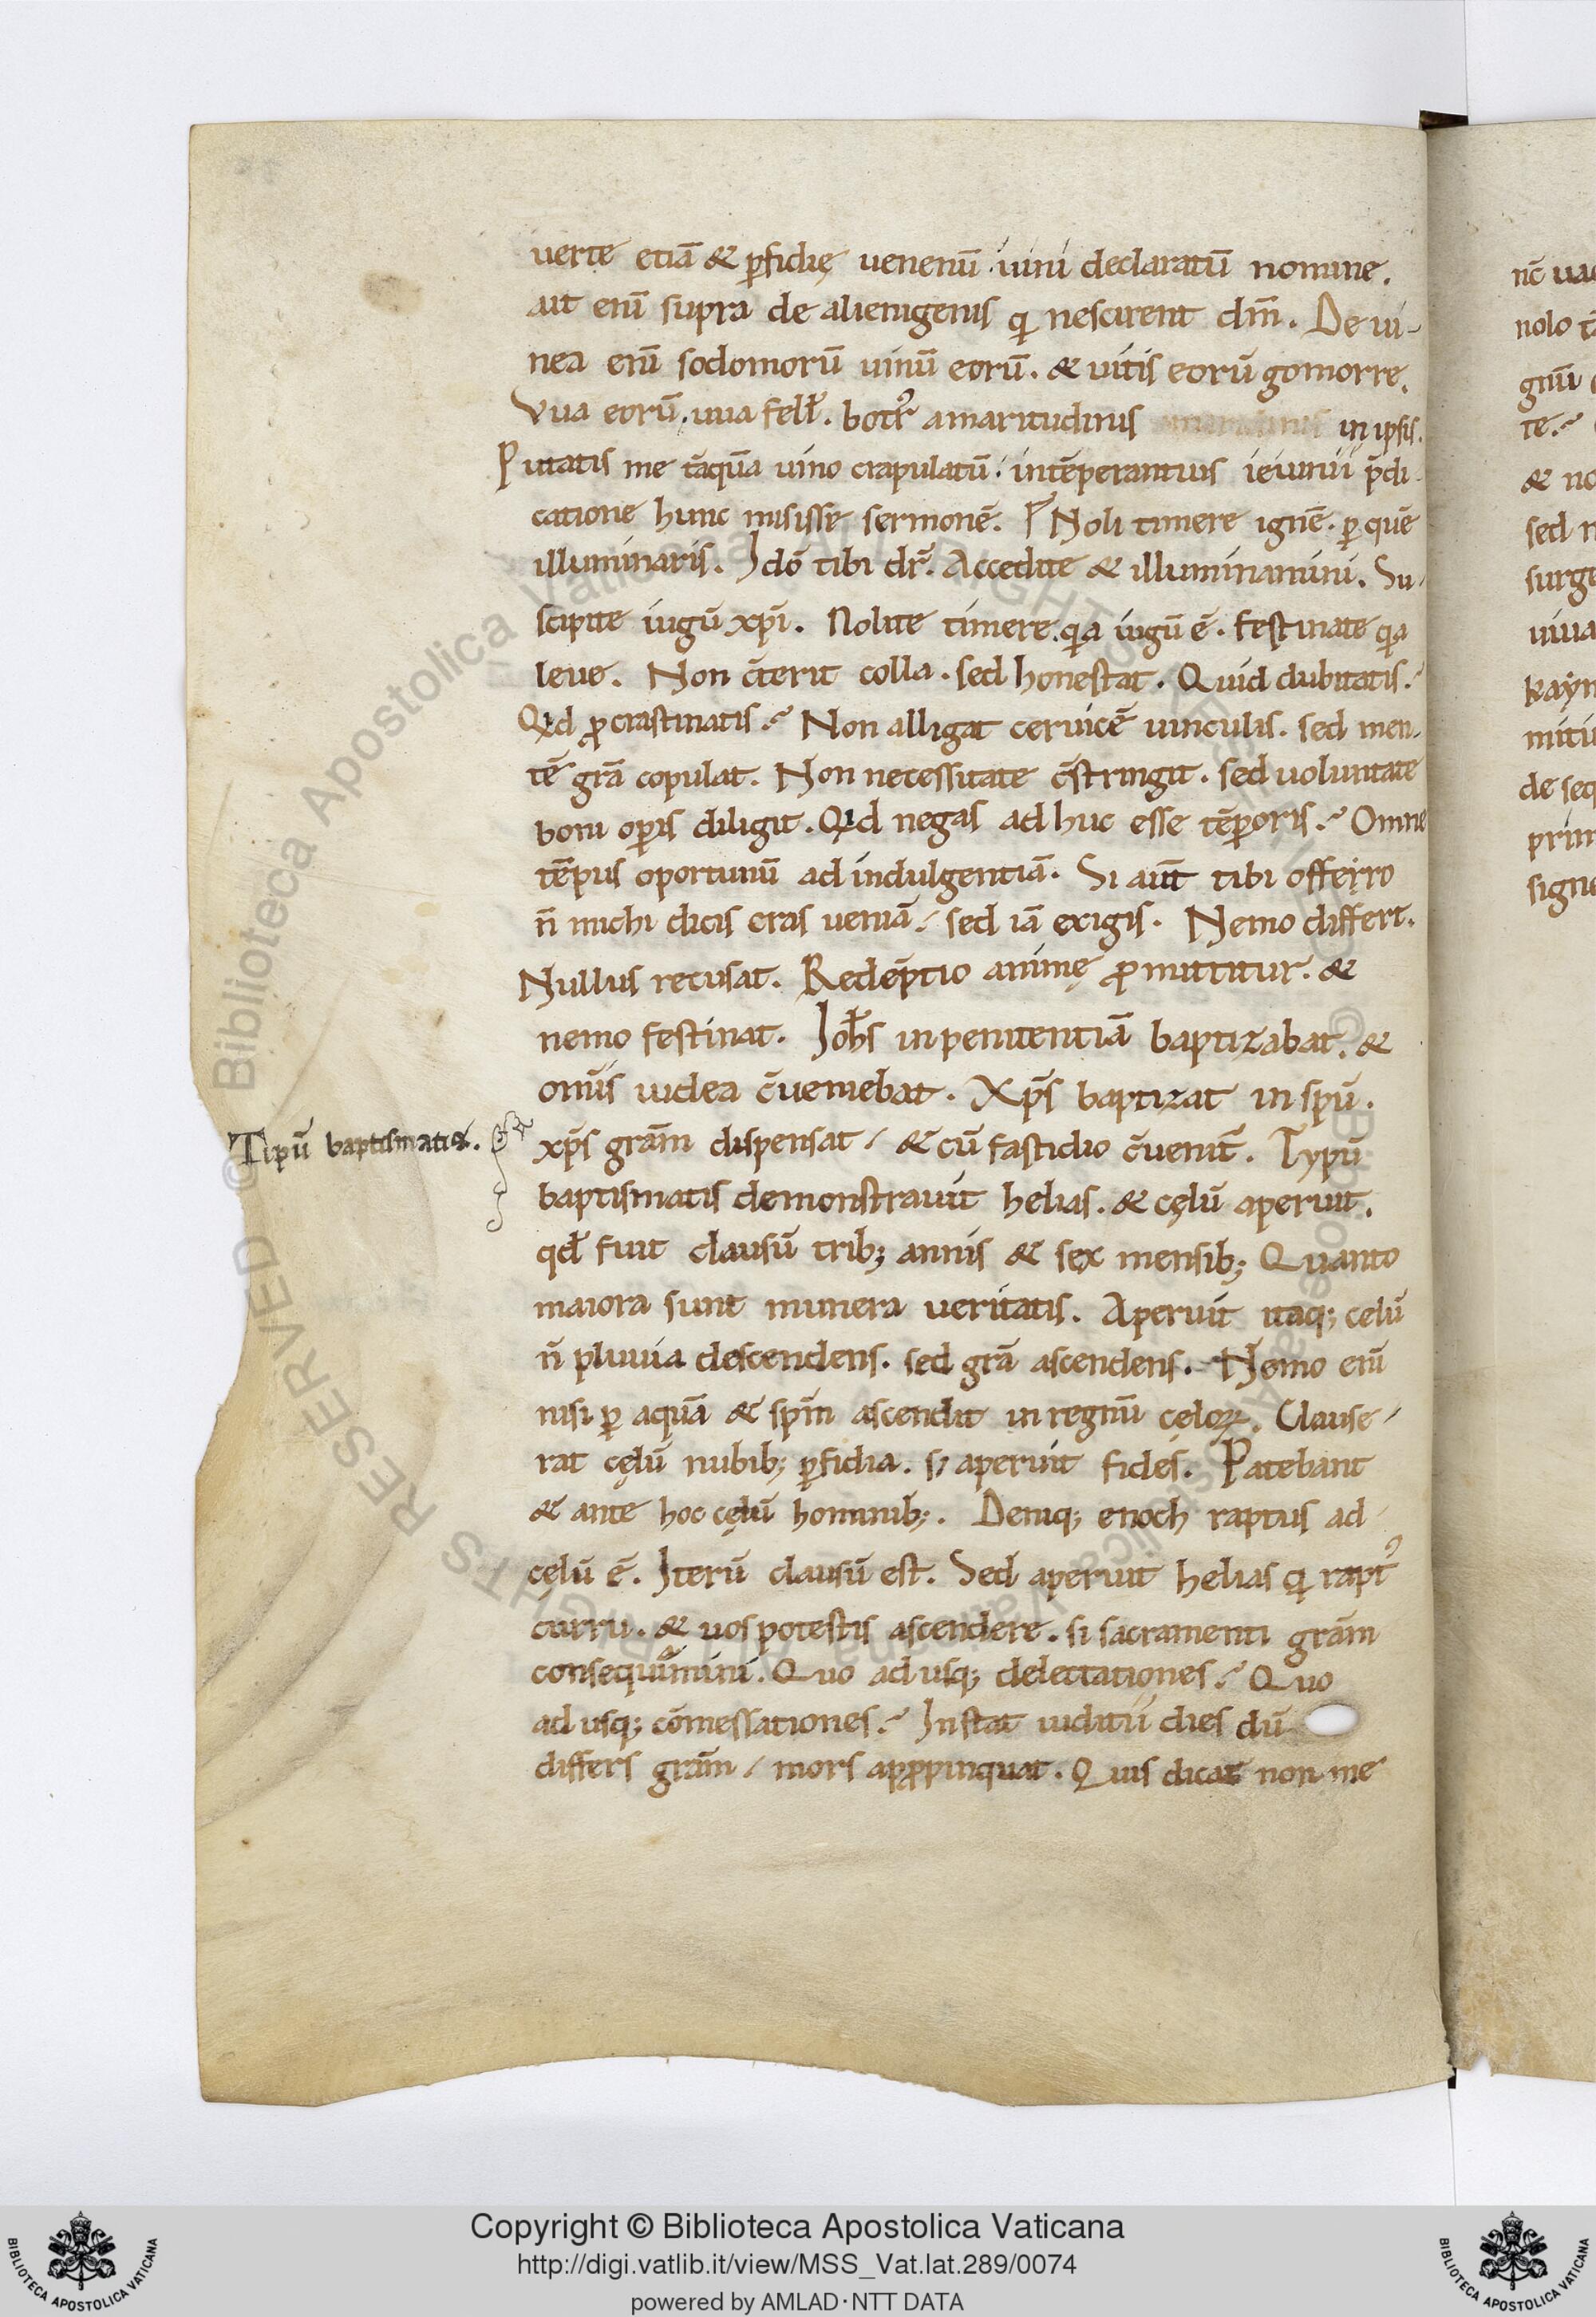 uerte etiā & ꝑfidię uenenū uini declaratū nomine.
ait enī supra de alienigenis qi nescirent dm̄. De ui-
nea enī sodomorū uinū eorū. & uitis eorū gomorre.
Vua eorū. uua fell̄. botr᾽ amaritudinis in ipsis.
Putatis me tāquā uino crapulatū. intēperantius ieiunii p̄di-
catione hunc misisse sermonē. Noli timere ignē. ꝑ quē
illuminaris. Idō tibi dr̄. Accedite & illuminamini. Su-
scipite iugū xp̄i. Nolite timere qia iugū ē. festinate qia
leue. Non c̄terit colla. sed honestat. Quid dubitatis?
Qid ꝓcrastinatis? Non alligat ceruicē uinculis. sed men-
tē grā copulat. Non necessitate c̄stringit. sed uoluntate
boni oꝑis diligit. Qid negas ad huc esse tēꝑoris? Omne
tēpus oportunū ad indulgentiā. Si aut̄ tibi offerro
n̄ michi dicis cras ueniā / sed iā exigis. Nemo differt.
Nullus recusat. Redēptio animę ꝓmittitur. &
nemo festinat. Ioh̄s in penitentiā baptizabat. &
om̄is iudea c̄ueniebat. Xp̄s baptizat in spū.
xp̄s grām dispensat / & cū fastidio c̄uenit̄. Typū
Tipū baptismatis.
baptismatis demonstrauit helias. & cęlū aperuit.
qd̄ fuit clausū trib; annis & sex mensib; Quanto
maiora sunt munera ueritatis. Aperuit itaq; celū
n̄ pluuia descendens. sed grā ascendens. Nemo enī
nisi ꝑ aquā & spm̄ ascendit in regnū cęloꝝ. Clause-
rat cęlū nubib; ꝑfidia. s; aperuit fides. Patebant
& ante hoc cęlū hominib;. Deniq; enoch raptus ad
cęlū ē. Iterū clausū est. Sed aperuit helias qi rapt᾽
curru. & uos potestis ascendere. si sacramenti grām
consequimini. Quo ad usq; delectationes? Quo
ad usq; cōmessationes? Instat iuditii dies dū
differs grām / mors apꝓpinquat. Quis dicat non me
nc̄
nolo
gnū
te.
& no
sed
surge
uiua
kayn
miti
de seq
prim
signe
Copyright © Biblioteca Apostolica Vaticana
http://digi.vatlib.it/view/MSS_Vat.lat.289/0074
powered by AMLAD·NTT DATA
BIBLIOTECA APOSTOLICA VATICANA
BIBLIOTECA APOSTOLICA VATICANA